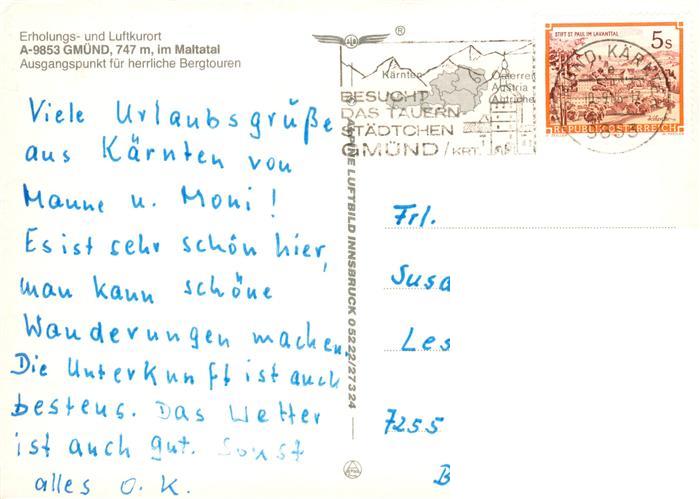 Erholungs- und Luftkurort
A-9853 GMÜND, 747 m, im Maltatal
Ausgangspunkt für herrliche Bergtouren
Viele Urlaubsgrüße
aus Kärnten von
Manne u. Moni!
Es ist sehr schön hier,
man kann schöne
Wanderungen machen.
Die Unterkunft ist auch
bestens. Das Wetter
ist auch gut. Sonst
alles O.K.
ALPINE LUFTBILD INNSBRUCK 05222/27324
®
Kärnten
Österrei
Austria
Autriche
BESUCHT
DAS TAUERN-
STÄDTCHEN
GMÜND/KRT.
STIFT ST. PAUL IM LAVANTTAL
5 S
REPUBLIK ÖSTERREICH
GMÜND, KÄRNTEN
9853
Frl.
Susa
Les
7255
B